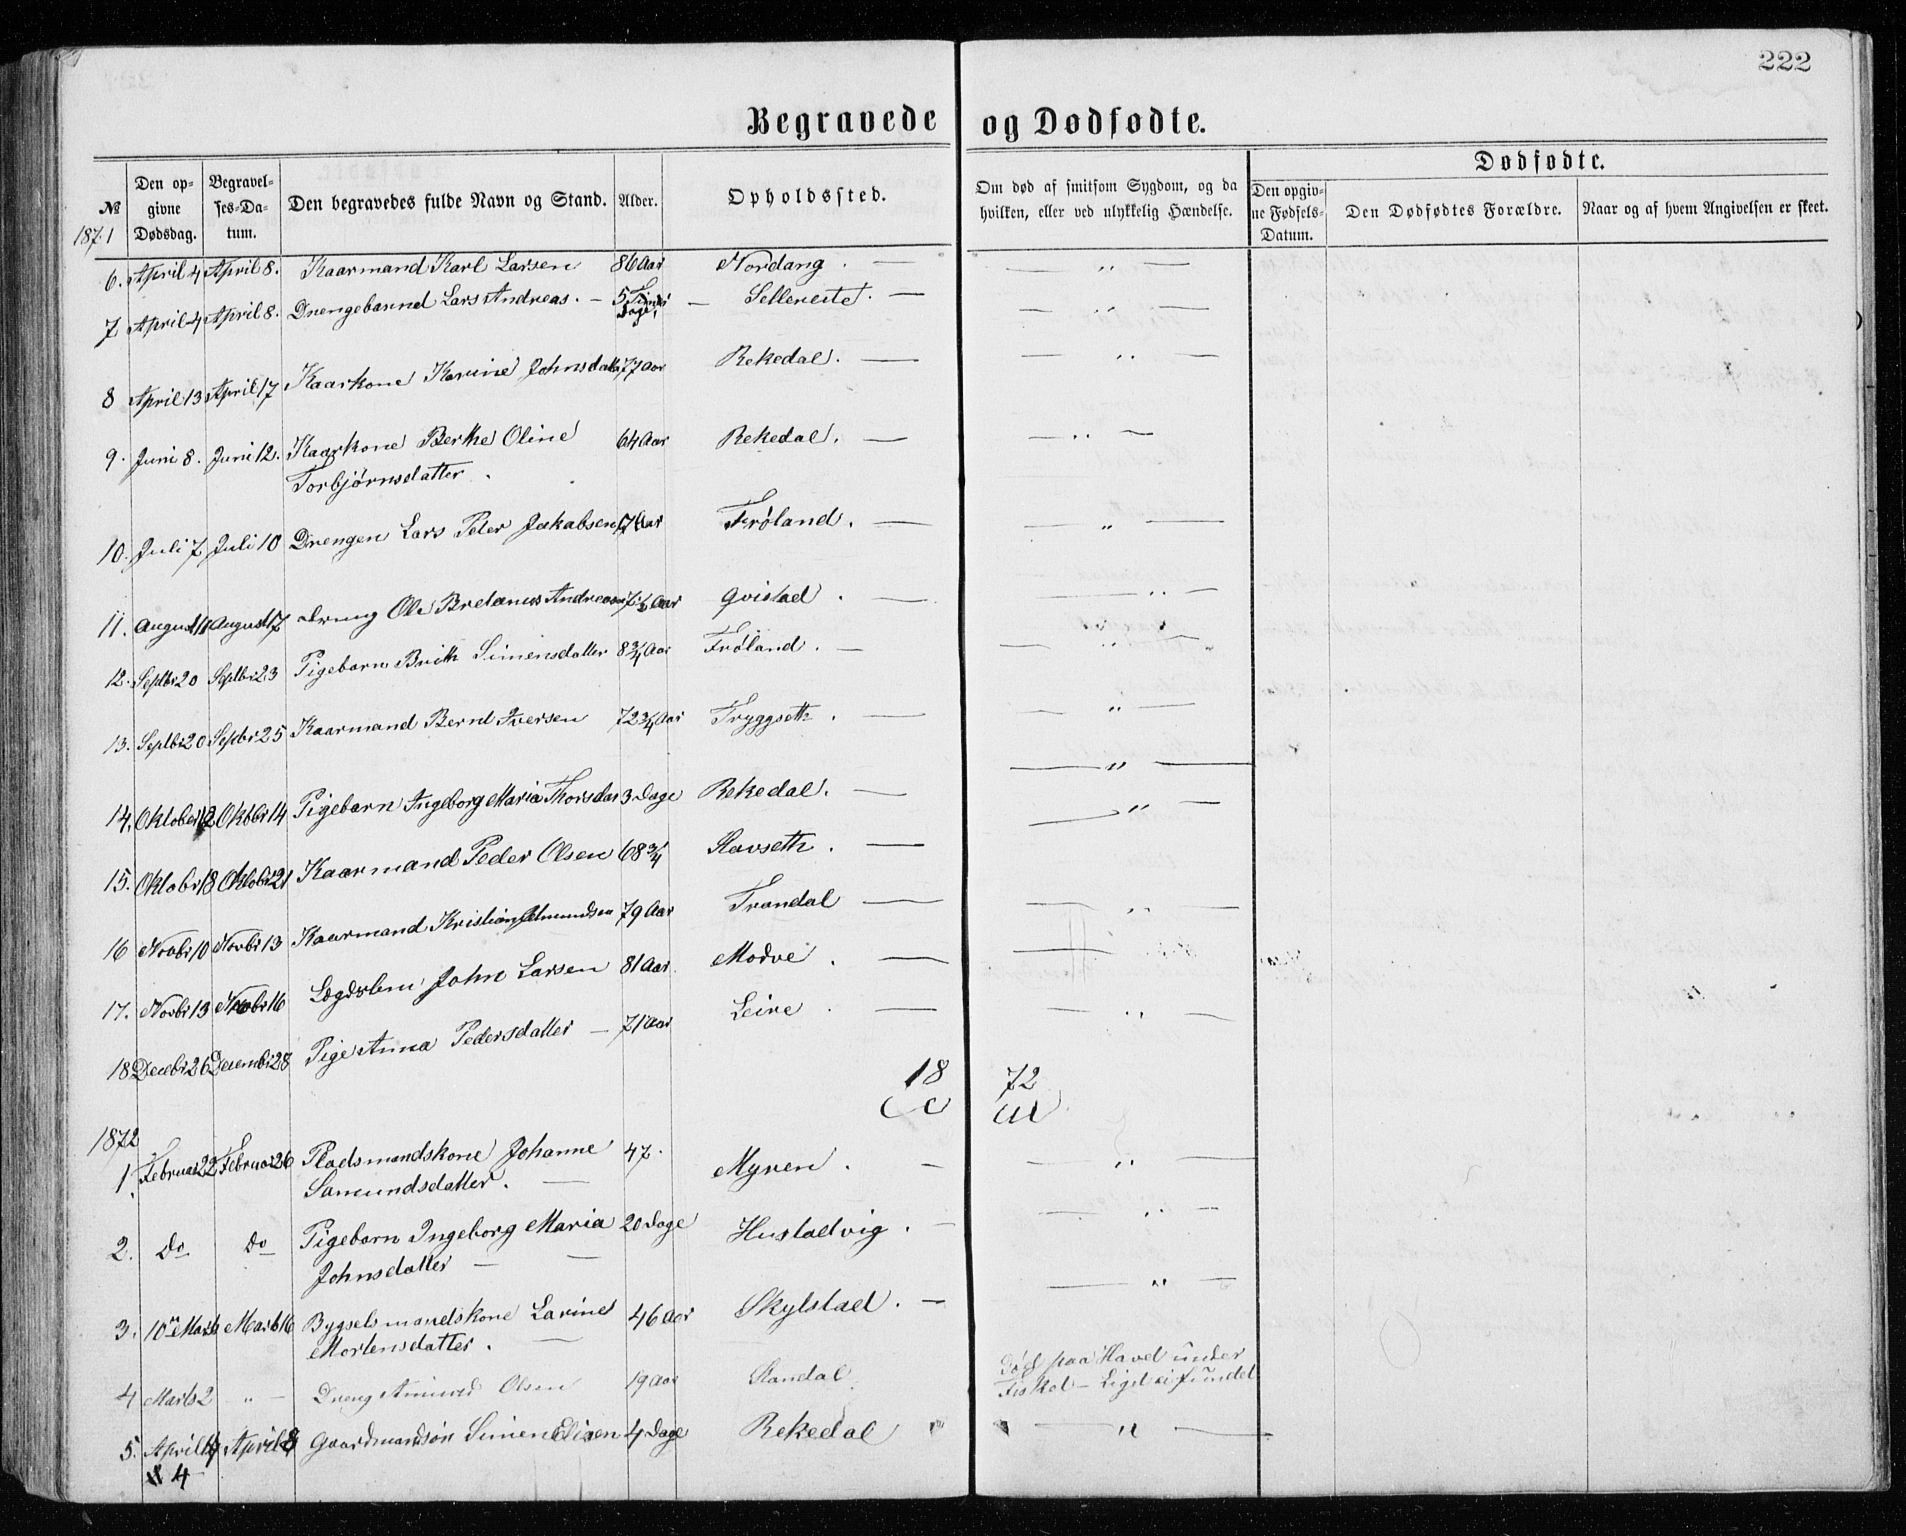 222
Begravede og Dødfødte.
Dødfødte.
№
Den opgivne Dødsdag.
Begravelses-Datum.
Den begravedes fulde Navn og Stand.
Alder.
Opholdssted.
Om død af smitsom Sygdom, og da hvilken, eller ved ulykkelig Hændelse.
Den opgivne Fødsels-Datum.
Den Dødfødtes Forældre.
Naar og af hvem Angivelsen er skeet.
1871
6. April 4 April 8. Kaarmand Karl Larsen 86 Aar Nordang. — — " —
7 April 4 April 8. Drengebarnd Lars Andreas. — 5 Dage — Sellereite. — — " —
8 April 13 April 17 Kaarkone Karine Johnsdatter 77 Aar Rekedal. — — " —
9. Juni 8. Juni 12. Kaarkone Berthe Oline 64 Aar Rekedal. — — " —
Torbjørnsdatter.
10. Juli 7 Juli 10 Drengen Lars Peter Jakobsen Aar Frøland. — — " —
11. August August 17 Dreng Ole Bretanus Andreasen 7½ Aar Qvistad. — — " —
12. Septbr 20 Septbr 23 Pigebarn Brith Simensdatter 8¾ Aar Frøland. — — " —
13. Septbr 20 Septbr 25 Kaarmand Bernt Iversen 72¾ Aar Tryggseth. — — " —
— " —
14. Oktober 12 Oktbr 14 Pigebarn Ingeborg Maria Thorsdat 3 Dage Rekedal. — — " —
15. Oktobr 18 Oktobr 21 Kaarmand Peder Olsen 68¾ Ravseth. —
16 Novbr 10 Novbr 13 Kaarmand Kristian Amundsen 79 Aar Trandal — — " —
17. Novbr 13 Novbr 16 Lægdslem John Larsen 81 Aar Modve. — —
18 Decbr 26 Desembr 28 Pige Anna Pedersdatter — 71 Aar Leire. — — " —
18 72
1872
1. Februar 22 Februar 26 Pladsmandskone Johanne 47. Myren. — — " —
Samundsdatter. —
2. Do Do Pigebarn Ingeborg Maria 20 Dage Hustadvig. — — " —
Johnsdatter — —
3. 10de Marts Marts 16 Bygselsmandskone Larine 46 Aar Skylstad. — — " —
Mortensdatter. —
4 Marts 2 " — Dreng Olsen 19 Aar Standal. Død paa Havet under
Fisket — Liget ei fundet
5. April April 8 Gaardmandsøn Simen Elisen 4 Dage Rekedal " — " —
4